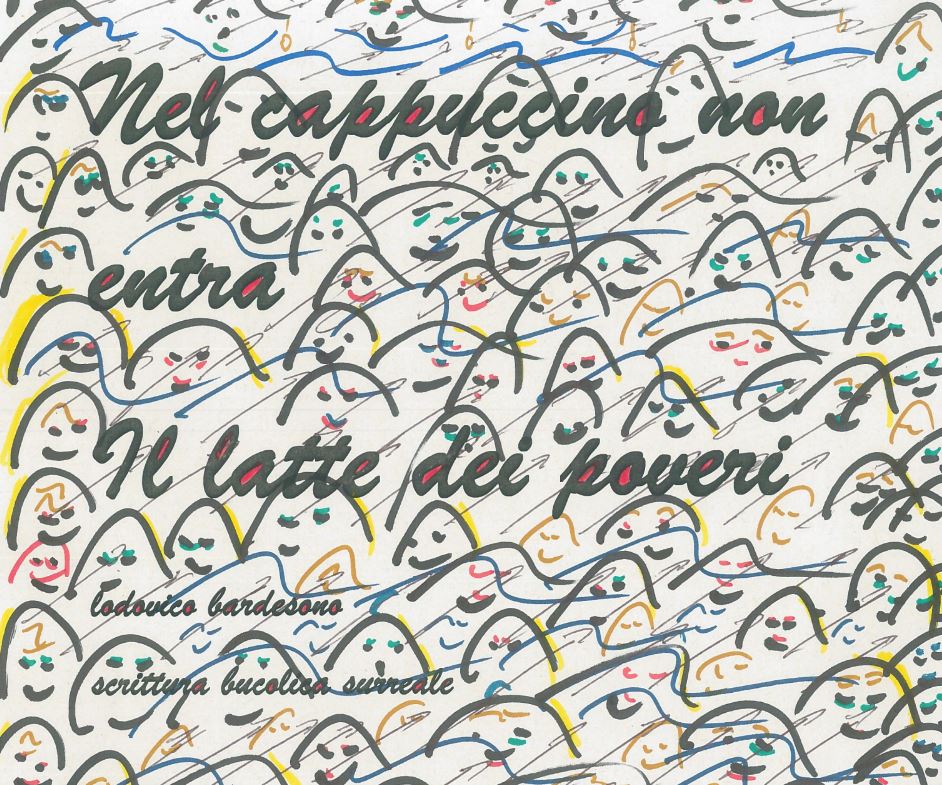 Nel cappuccino non
entra
Il latte dei poveri
lodovico bardesono
scrittura bucolica surreale